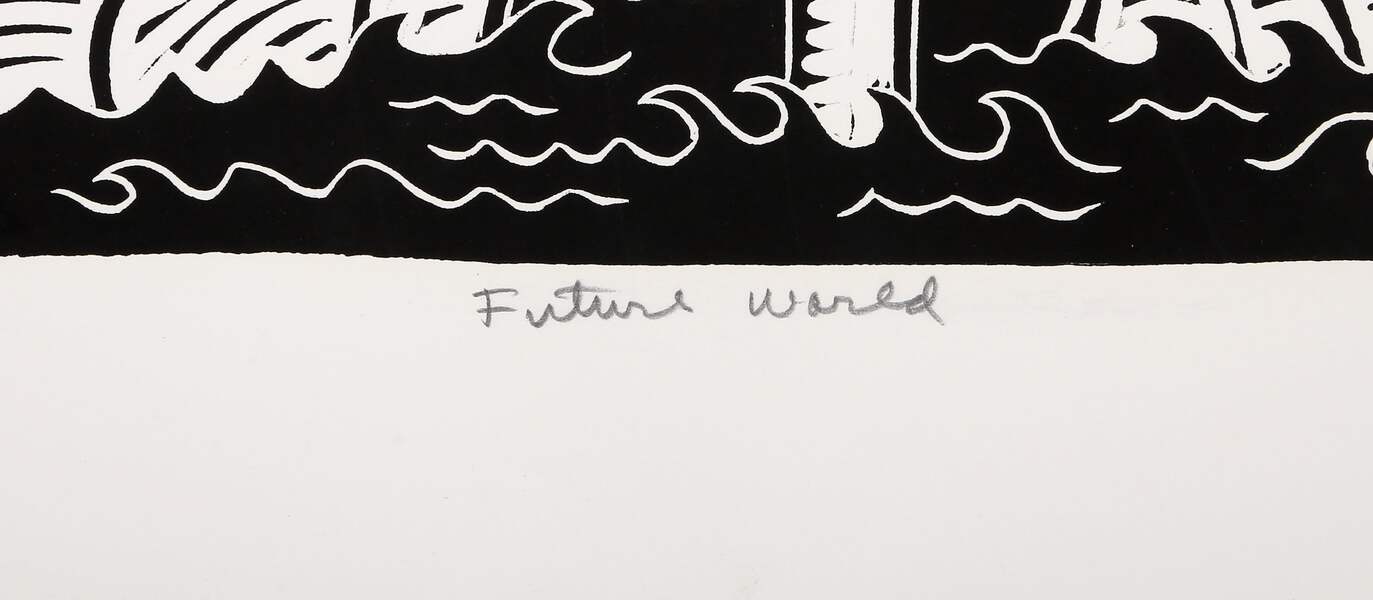 Future World